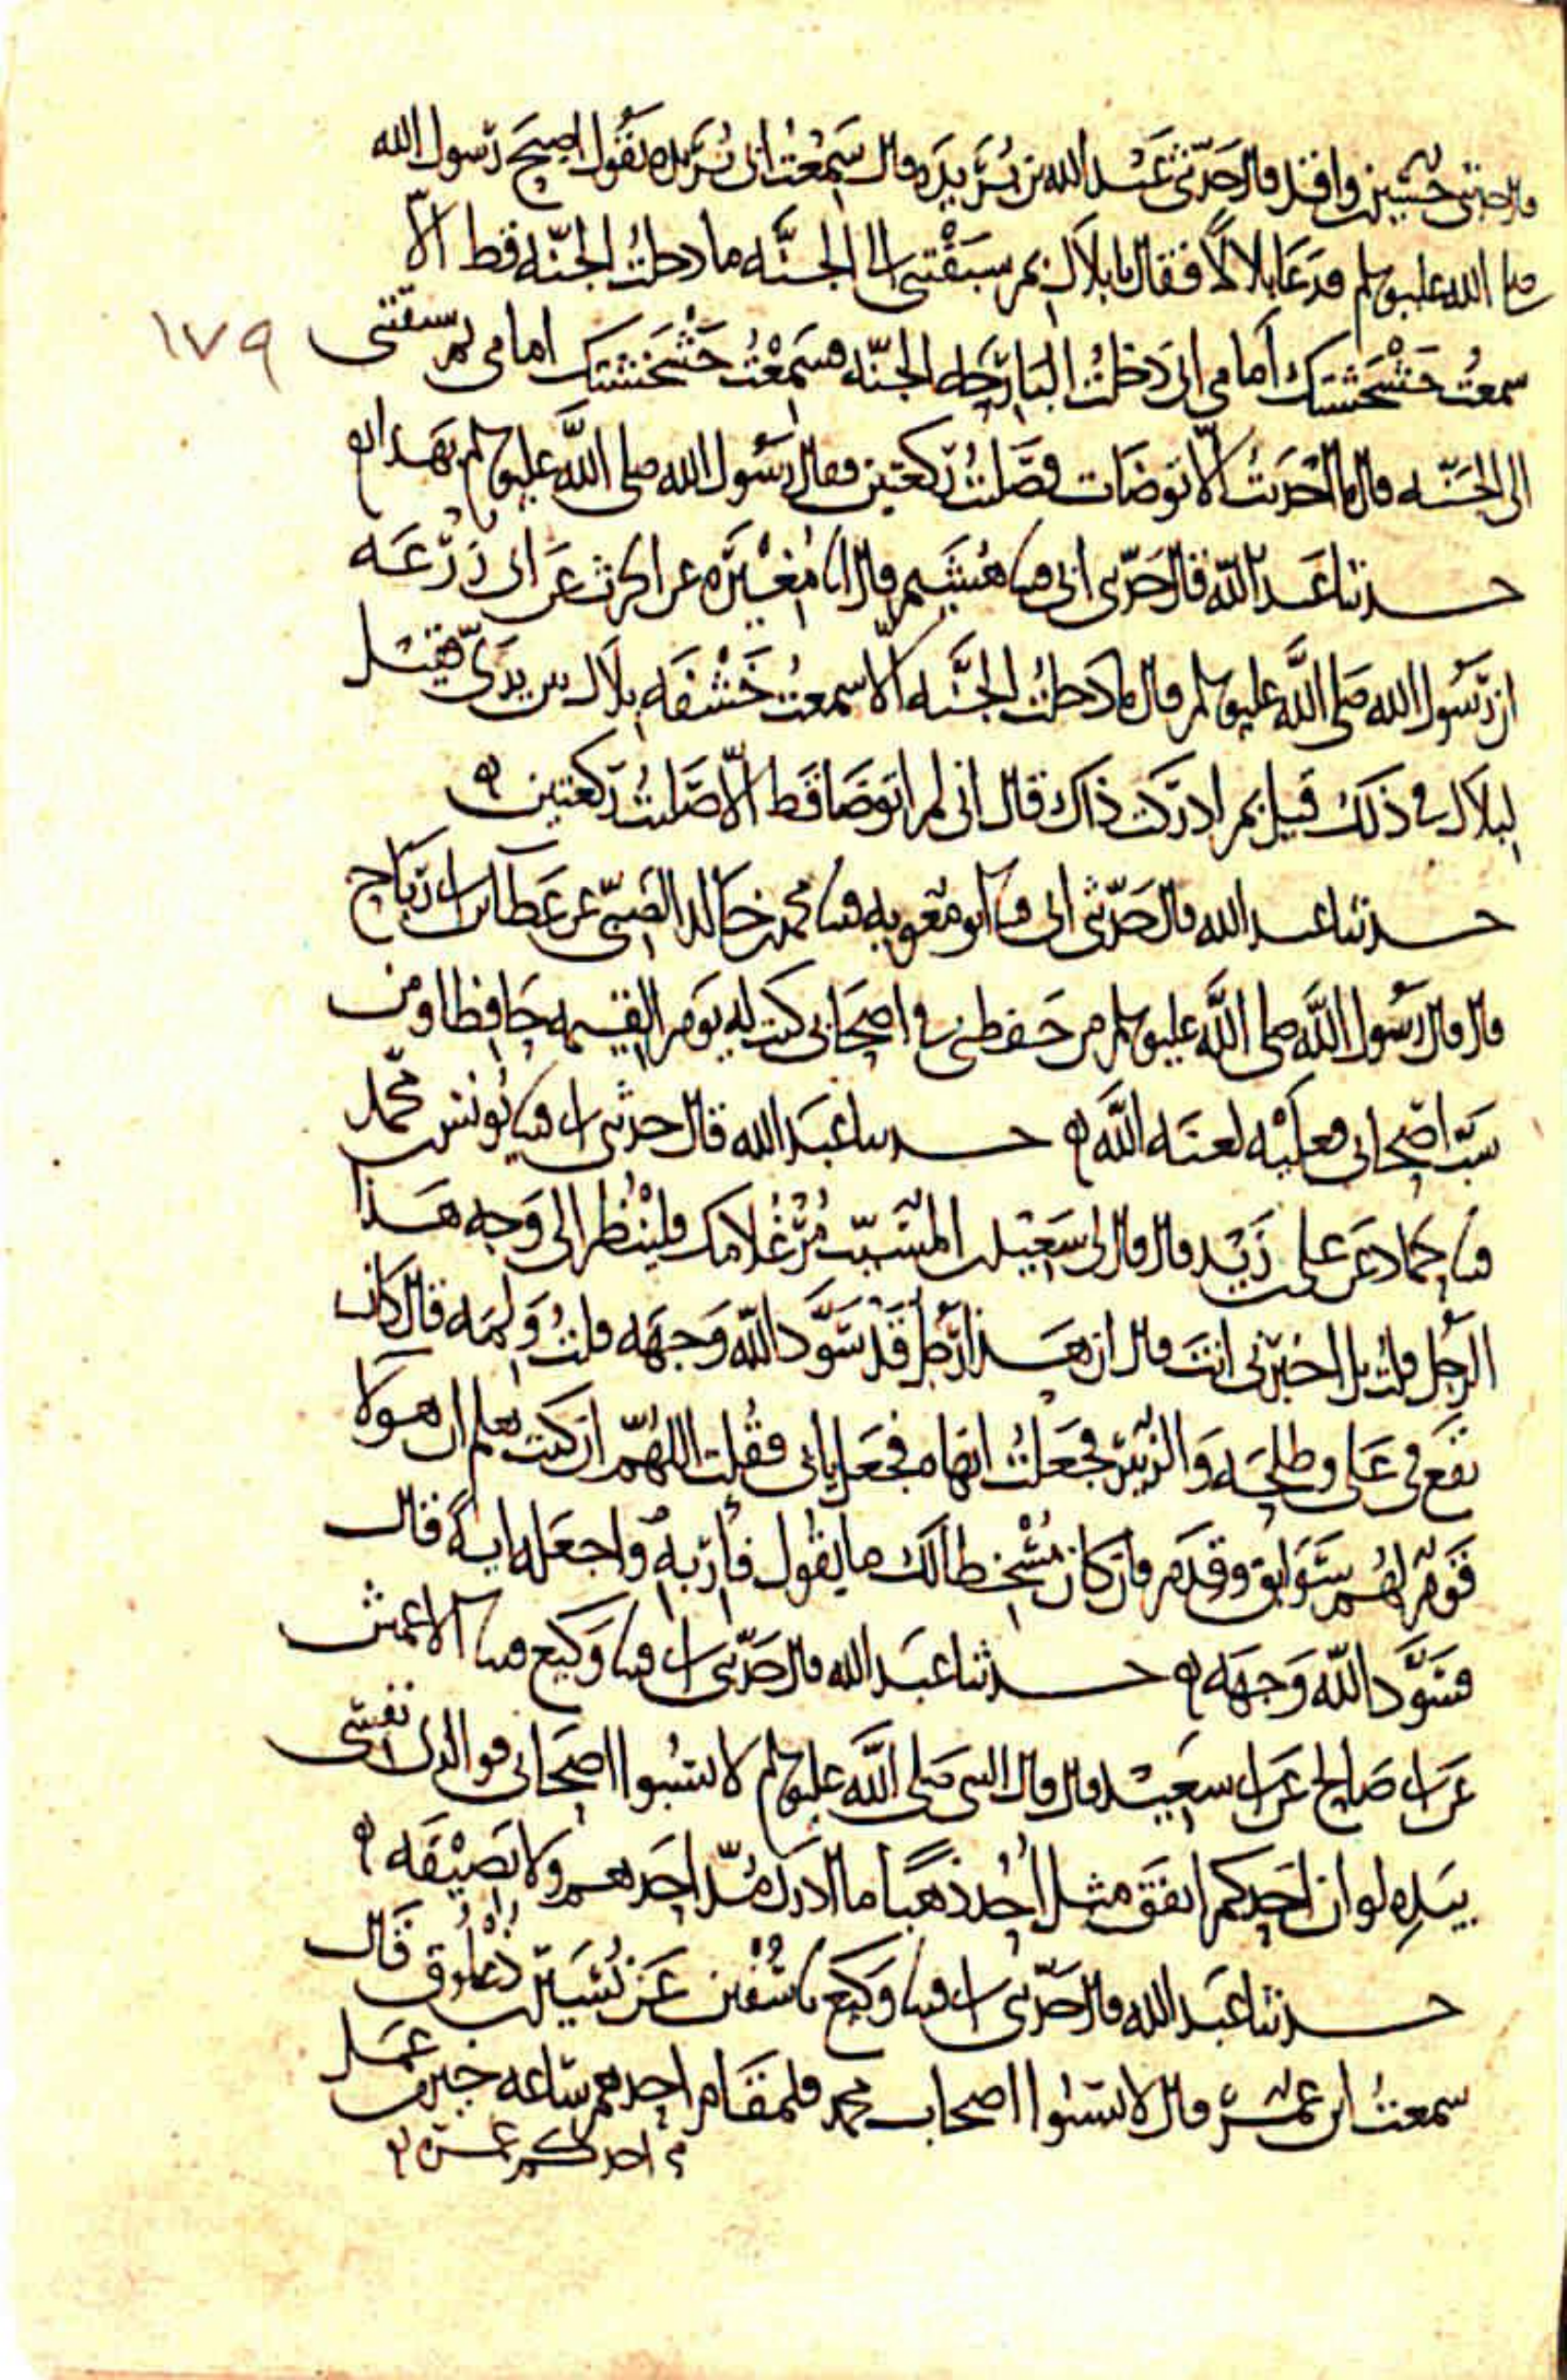 قال حدثنى حسين بن واقد قال حدثنى عبد الله بن بريده قال سمعت ابى بريده يقول اصبح رسول الله
صلى الله عليه وسلم فدعا بلالا فقال يا بلال بم سبقتنى الى الجنه ما دخلت الجنه قط الا
سمعت خشخشتك امامى انى دخلت البارحه الجنه فسمعت خشخشتك امامى بم سبقتنى
١٧٩
الى الجنه قال ما احدثت الا توضات وصليت ركعتين فقال رسول الله صلى الله عليه وسلم بهذا
حدثنا عبد الله قال حدثنى ابى قثنا هشيم قال انا مغيره عن الحرث عن ابى زرعه
ان رسول الله صلى الله عليه وسلم قال ما دخلت الجنه الا سمعت خشفه بلال بين يدى فقيل
لبلال فى ذلك قيل بم ادركت ذاك قال انى لم اتوضا قط الا صليت ركعتين
حدثنا عبد الله قال حدثنى ابى قثنا ابو معويه قثنا محمد بن خالد الضبى عن عطا بن ابى رباح
قال قال رسول الله صلى الله عليه وسلم من حفظنى فى اصحابى كنت له يوم القيمه حافظا ومن
سب اصحابى فعليه لعنه الله حدثنا عبد الله قال حدثنى ابى قثنا يونس بن محمد
قثنا حماد عن على بن زيد قال قال لى سعيد بن المسيب مر غلامك فلينظر الى وجه هذا
الرجل قلت بل اخبرنى انت قال ان هذا رجل قد سود الله وجهه قلت ولمه قال كان
يقع فى على وطلحه والزبير فجعلت انهاه فجعل يابى فقلت اللهم ان كنت تعلم ان هولا
قوم لهم سوابق وقدم فان كان مسخطا لك ما يقول فاربه واجعله ايه قال
فسود الله وجهه حدثنا عبد الله قال حدثنى ابى قثنا وكيع قثنا الاعمش
عن ابى صالح عن ابى سعيد قال قال النبى صلى الله عليه وسلم لا تسبوا اصحابى فوالذى نفسى
بيده لو ان احدكم انفق مثل احد ذهبا ما ادرك مد احدهم ولا نصيفه
حدثنا عبد الله قال حدثنى ابى قثنا وكيع نا سفين عن نسير بن ذعلوق قال
سمعت ابن عمر قال لا تسبوا اصحاب محمد فلمقام احدهم ساعه خير من عمل
احدكم عمره